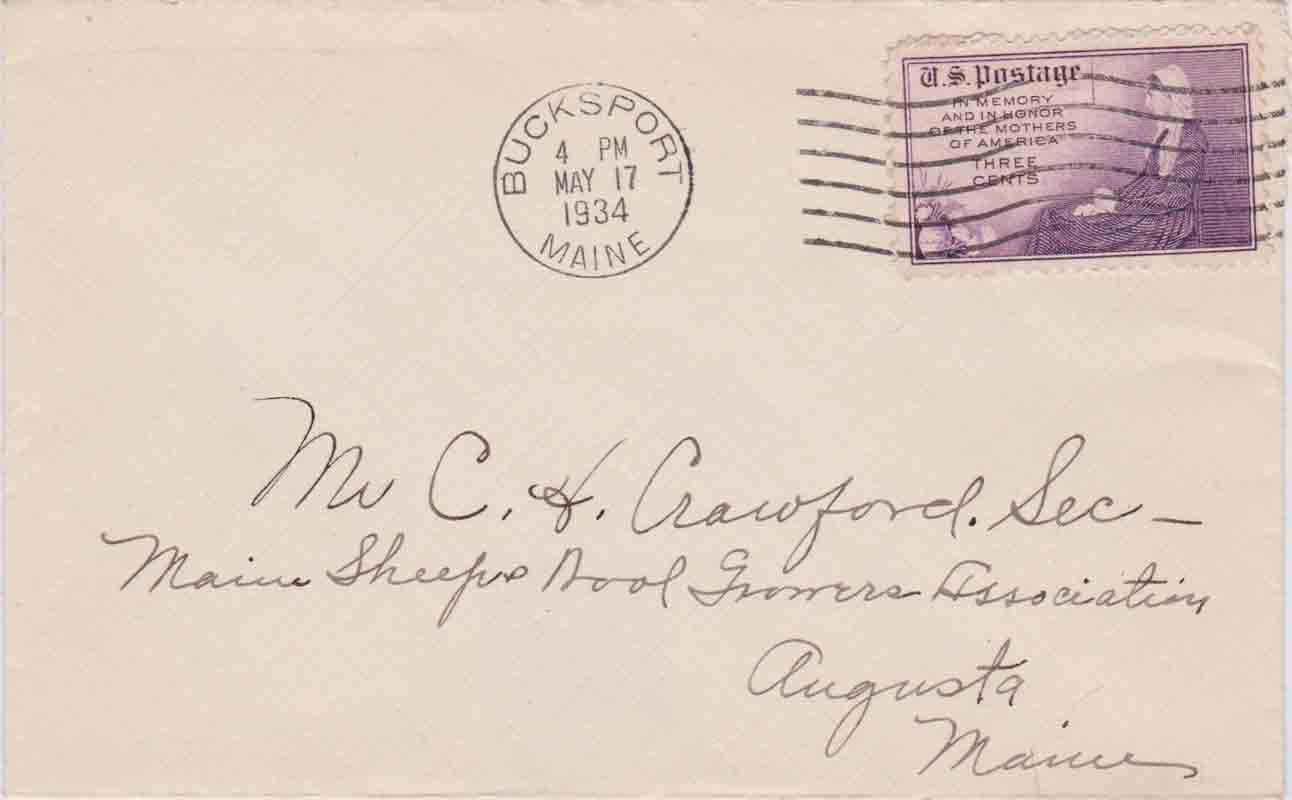 BUCKSPORT
4 PM
MAY 17
1934
MAINE
U.S. Postage
IN MEMORY
AND IN HONOR
OF THE MOTHERS
OF AMERICA
THREE
CENTS
Mr C. H. Crawford. Sec -
Maine Sheep & Wool Growers Association
Augusta
Maine